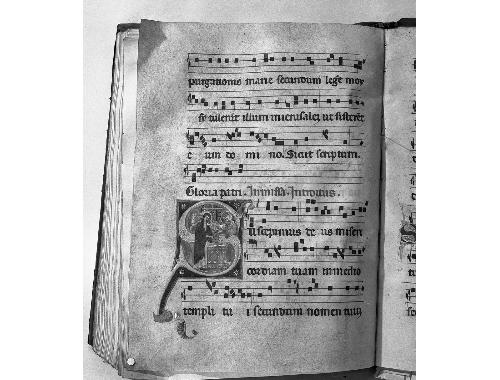 purgationis marie secundum lege moy
si tulerūt illum in ierusalē, ut sisterēt
e um do mi no. Sicut scriptum.
Gloria patri. In missa. Introitus.
uscepimus de us miseri
cordiam tuam in medio
templi tu i secundum nomen tuū